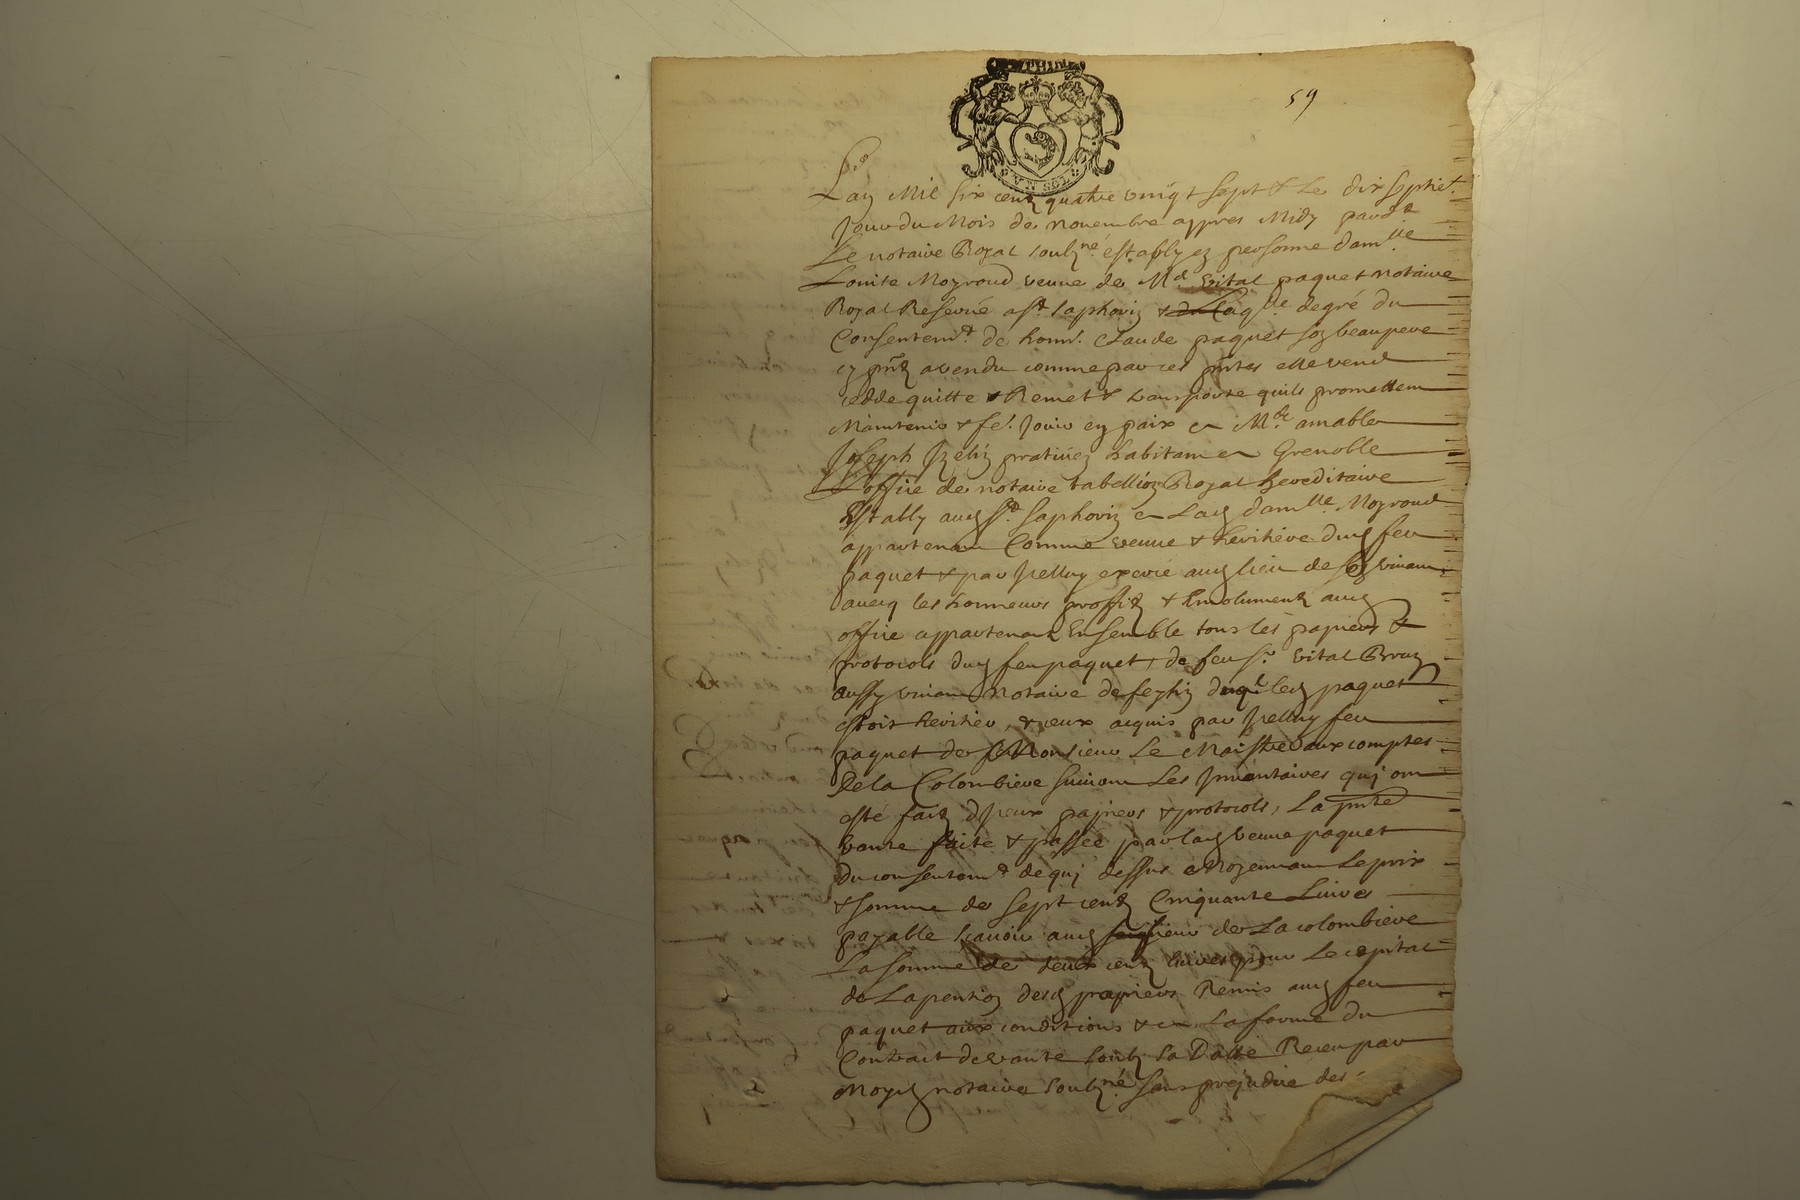 DAVPHINE
VN SOL
59
Lan Mil six centz quatre vingt sept & Le dix septiet.
Jour du Mois de novembre appres Midy pard.t
Le notaire Royal soubz.né establye en personne dam.lle
Louise Moyroud veuve de M.e vital paquet notaire
Royal Reservé a S.t saphorin & laq.lle degré du
Consentem.t de honn.e Claude paquet son beaupere
cy p.nt a vendu comme par ces p.ntes elle vend
cedde quitte Remet & transporte quils promettent
Maintenir & fe.e Jouir en paix a M.re amable
Joseph pratitien habitant a Grenoble
L'office de notaire tabellion Royal hereditaire
Estably aud S.t saphorin a Lad dam.lle Moyroud
appartenant Comme veuve & heritiere dud feu
paquet & par Jcelluy exercé aud lieu de son vivant
avecq les honneurs proffitz & Emolumentz aud
office appartenantz Ensemble tous les papiers &
protocols dud feu paquet, de feu s.r vital Brun
aussy vivant notaire de feyzin duq.l led paquet
estoit heritier, & ceux acquis par Jcelluy feu
paquet de Monsieur Le Maistre aux comptes
De la Colombiere suivant Les Jnventaires qui ont
esté faitz d'Jceux papiers & protocols, La p.nte
vante faite & passée par lad veuve paquet
du consentem.t de qui dessus Moyennant Le prix
& somme de sept centz Cinquante Livres
payable scavoir aud sieur de La colombiere
La somme de deux centz livres pour Le capital
de La pention desd papiers Remis aud feu
paquet aux conditions & en La forme du
Contract de vante soubz sa Datte Receu par
Moyd notaire soubz.né sans prejudice des